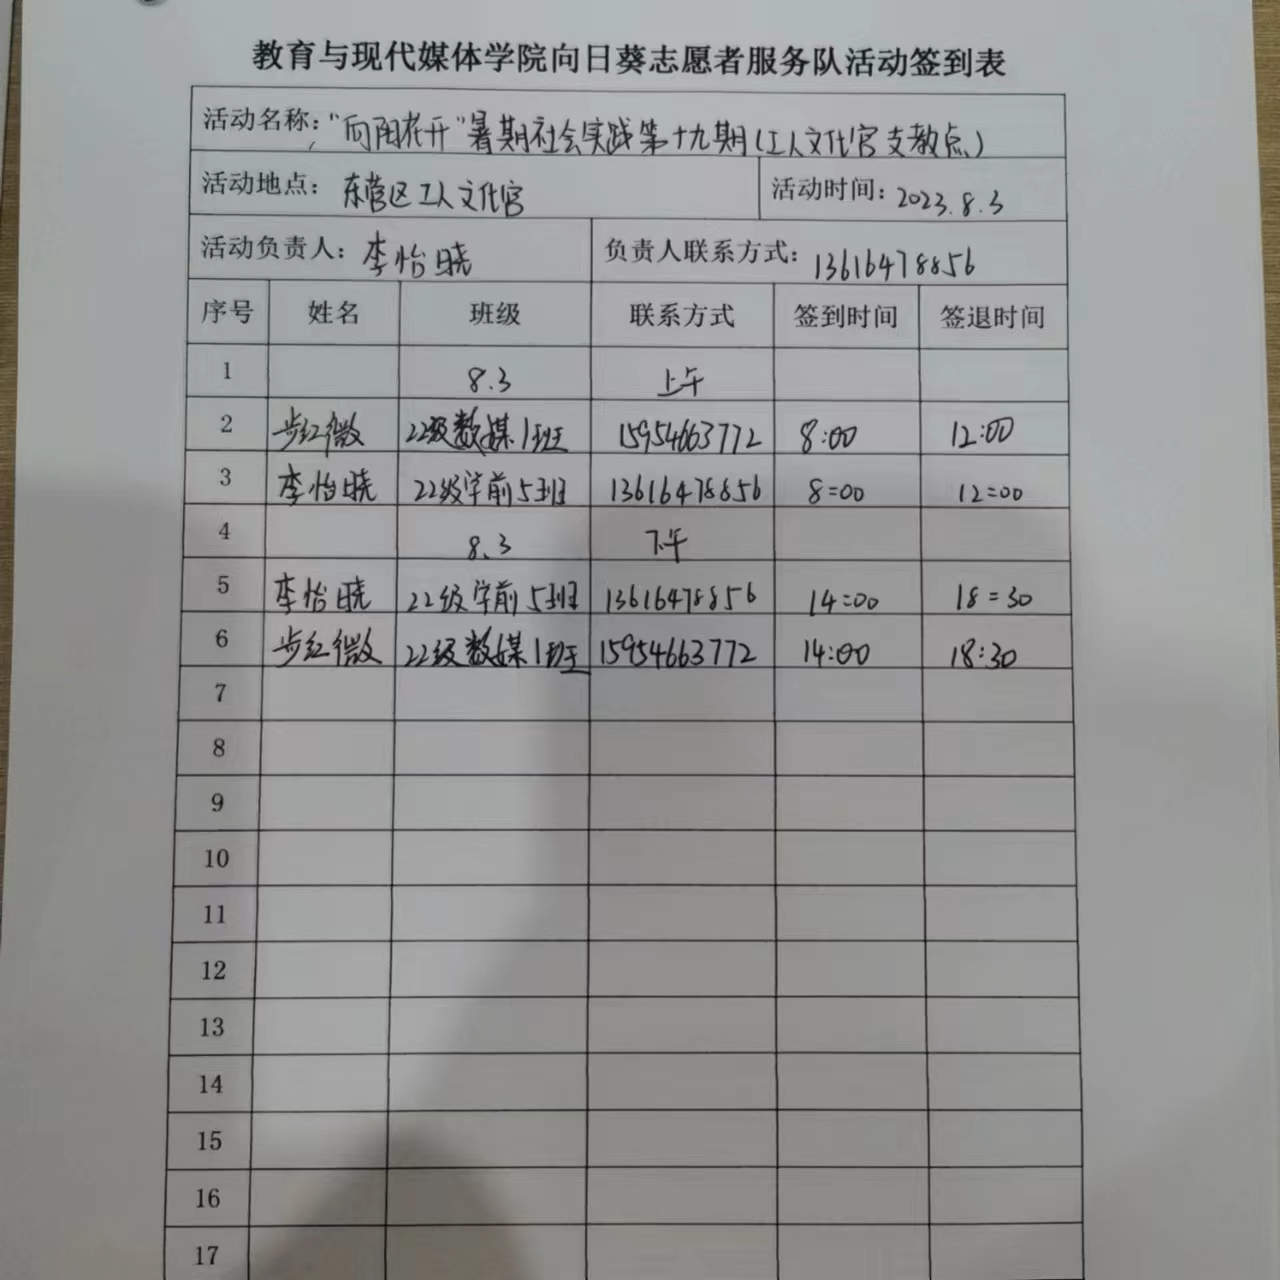 教育与现代媒体学院向日葵志愿者服务队活动签到表
活动名称："向阳花开"暑期社会实践第十九期(工人文化宫支教点)
活动地点：东营区工人文化宫 活动时间：2023.8.3
活动负责人：李怡晓 负责人联系方式：13616478856
序号 姓名 班级 联系方式 签到时间 签退时间
1 8.3 上午
2 步红微 22级数媒1班 15954663772 8:00 12:00
3 李怡晓 22级学前5班 13616478856 8:00 12:00
4 8.3 下午
5 李怡晓 22级学前5班 13616478856 14:00 18:30
6 步红微 22级数媒1班 15954663772 14:00 18:30
7
8
9
10
11
12
13
14
15
16
17